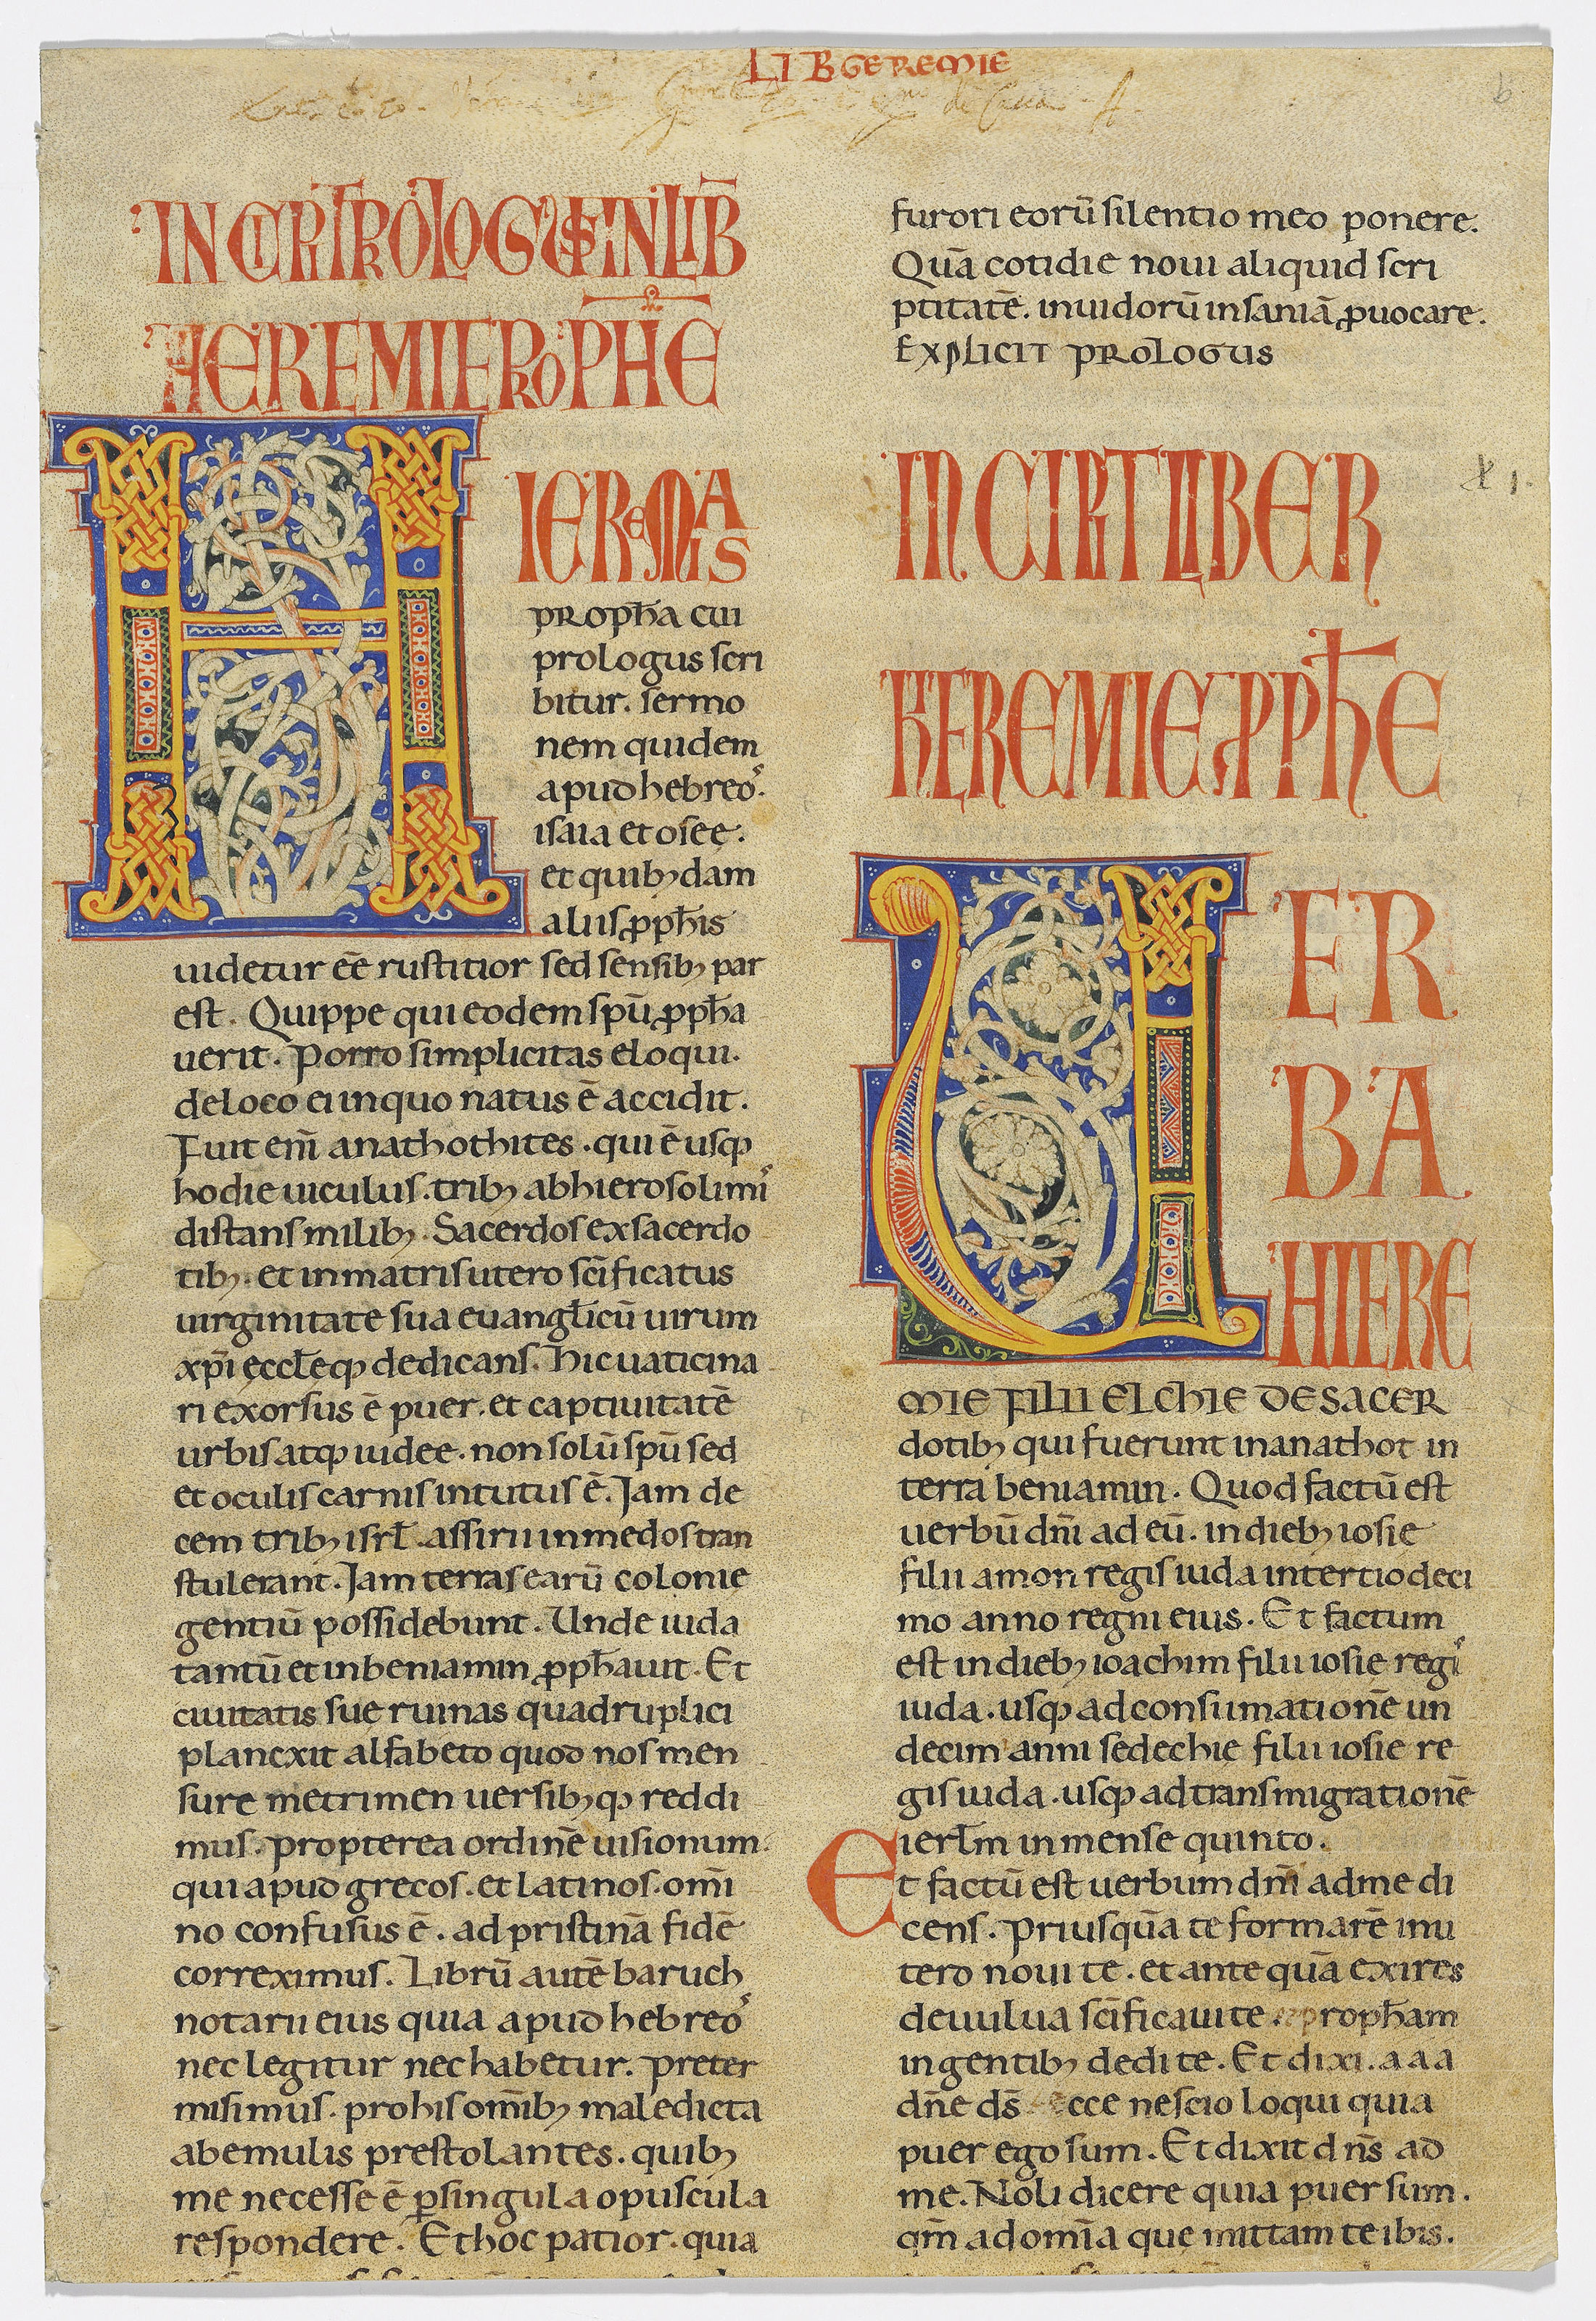 LIB GEREMIE
INCIPIT PROLOGUS IN LIB
HIEREMIE PROPHE
HIEREMIAS
propħa cui
prologus scri
bitur. sermo
nem quidem
apud hebreos.
isaia et osee.
et quibꝫdam
aliis ꝓpħis
uidetur eē rusticior sed sensibꝫ par
est. Quippe qui eodem spū ꝓpħa
uerit. Porro simplicitas eloqui.
de loco ei in quo natus ē accidit.
Fuit eni̅ anathothites. qui ē usqꝫ
hodie uiculus. tribꝫ ab hierosolimis
distans milibꝫ. Sacerdos ex sacerdo
tibꝫ. et in matris utero sc̄ificatus
uirginitate sua euangl̄icū uirum
xp̄i ęccl̄eqꝫ dedicans. Hic uaticina
ri exorsus ē puer. et captiuitatē
urbis atqꝫ iudee. non solū spū sed
et oculis carnis intutus ē. Jam de
cem tribꝫ isrl̄. assirii in medos tran
stulerant. Jam terras earū colonie
gentiū possidebunt. Unde iuda
tantū et in beniamin ꝓpħauit. Et
ciuitatis suę ruinas quadruplici
planexit alfabeto quod nos men
sure metri men uersibꝫqꝫ reddi
mus. propterea ordinē uisionum
qui apud grecos. et latinos. om̄i
no confusus ē. ad pristinā fidē
correximus. Librū autē baruch
notarii eius quia apud hebreos
nec legitur nec habetur. preter
misimus. pro his om̄ibꝫ maledicta
ab emulis prestolantes. quibꝫ
me necesse ē ꝑ singula opuscula
respondere. Et hoc patior. quia
furori eorū silentio meo ponere.
Quā cotidie noui aliquid scri
ptitatē. inuidorū insaniā ꝓuocare.
EXPLICIT PROLOGUS
INCIPIT LIBER
HIEREMIE PPħE
UER
BA
HIERE
MIE FILII ELCHIE DE SACER
dotibꝫ qui fuerunt in anathot in
terra beniamin. Quod factū est
uerbū dn̄i ad eū. in diebꝫ iosie
filii amon regis iuda in tertio deci
mo anno regni eius. Et factum
est in diebꝫ ioachim filii iosie regis
iuda. usqꝫ ad consumationē un
decim anni sedechie filii iosie re
gis iuda. usqꝫ ad transmigrationē
ierl̄m in mense quinto.
Et factū est uerbum dn̄i ad me di
cens. Priusquā te formarē in u
tero noui te. et ante quā exires
de uulua sc̄ificaui te. propħam
in gentibꝫ dedi te. Et dixi. a a a
dn̄e ds̄ ecce nescio loqui quia
puer ego sum. Et dixit dn̄s ad
me. Noli dicere quia puer sum.
qm̄ ad om̄ia que mittam te ibis.